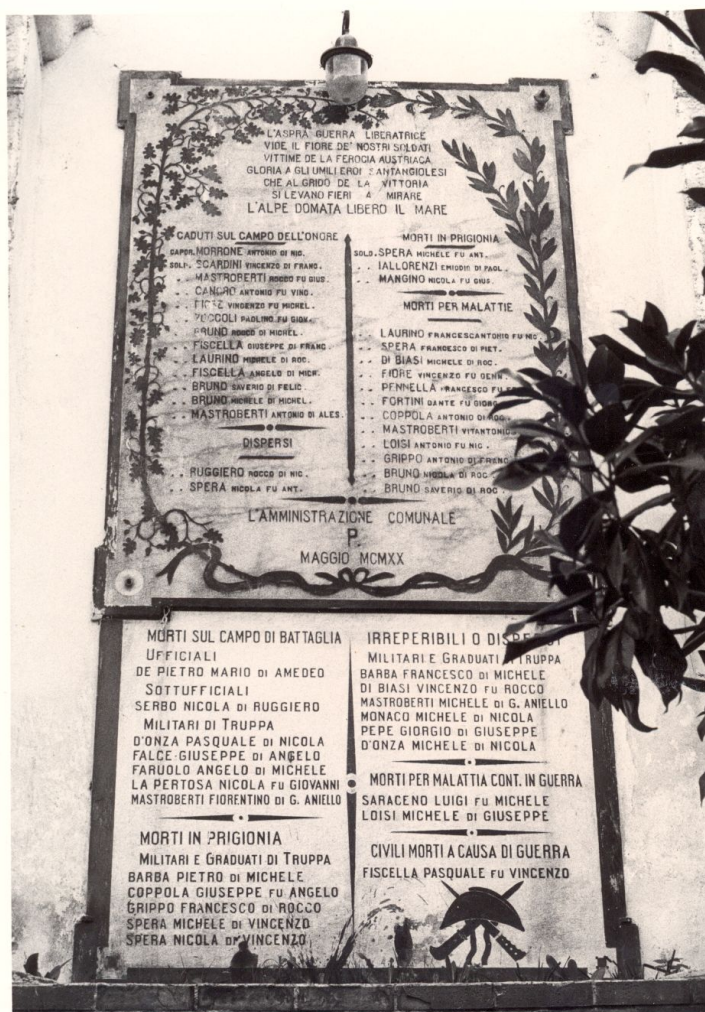 L'ASPRA GUERRA LIBERATRICE
VIDE IL FIORE DE' NOSTRI SOLDATI
VITTIME DE LA FEROCIA AUSTRIACA
GLORIA A GLI UMILI EROI SANTANGIOLESI
CHE AL GRIDO DE LA VITTORIA
SI LEVANO FIERI A MIRARE
L'ALPE DOMATA LIBERO IL MARE
CADUTI SUL CAMPO DELL'ONORE
CAPOR. MORRONE ANTONIO DI NIC.
SOLD. SCARDINI VINCENZO DI FRANC.
.. MASTROBERTI ROCCO FU GIUS.
.. CANGRO ANTONIO FU VINC.
.. VINCENZO FU MICHEL.
.. ZUCCOLI PAOLINO FU GIOV.
.. BRUNO ROCCO DI MICHEL.
.. FISCELLA GIUSEPPE DI FRANC.
.. LAURINO MICHELE DI ROC.
.. FISCELLA ANGELO DI MICH.
.. BRUNO SAVERIO DI FELIC.
.. BRUNO MICHELE DI MICHEL.
.. MASTROBERTI ANTONIO DI ALES.
DISPERSI
.. RUGGIERO ROCCO DI NIC.
.. SPERA NICOLA FU ANT.
MORTI IN PRIGIONIA
SOLD. SPERA MICHELE FU ANT.
.. IALLORENZI EMIDDIO DI PAOL.
.. MANGINO NICOLA FU GIUS.
MORTI PER MALATTIE
.. LAURINO FRANCESCANTONIO FU NIC.
.. SPERA FRANCESCO DI PIET.
.. DI BIASI MICHELE DI ROC.
.. FIORE VINCENZO FU GENN.
.. PENNELLA FRANCESCO FU
.. FORTINI DANTE FU GIORG.
.. COPPOLA ANTONIO DI ROC.
.. MASTROBERTI VITANTONIO
.. LOISI ANTONIO FU NIC.
.. GRIPPO ANTONIO DI FRANC.
.. BRUNO NICOLA DI ROC.
.. BRUNO SAVERIO DI ROC.
L'AMMINISTRAZIONE COMUNALE
P.
MAGGIO MCMXX
MORTI SUL CAMPO DI BATTAGLIA
UFFICIALI
DE PIETRO MARIO DI AMEDEO
SOTTUFFICIALI
SERBO NICOLA DI RUGGIERO
MILITARI DI TRUPPA
D'ONZA PASQUALE DI NICOLA
FALCE GIUSEPPE DI ANGELO
FARUOLO ANGELO DI MICHELE
LA PERTOSA NICOLA FU GIOVANNI
MASTROBERTI FIORENTINO DI G. ANIELLO
MORTI IN PRIGIONIA
MILITARI E GRADUATI DI TRUPPA
BARBA PIETRO DI MICHELE
COPPOLA GIUSEPPE FU ANGELO
GRIPPO FRANCESCO DI ROCCO
SPERA MICHELE DI VINCENZO
SPERA NICOLA DI VINCENZO
IRREPERIBILI O DISPERSI
MILITARI E GRADUATI DI TRUPPA
BARBA FRANCESCO DI MICHELE
DI BIASI VINCENZO FU ROCCO
MASTROBERTI MICHELE DI G. ANIELLO
MONACO MICHELE DI NICOLA
PEPE GIORGIO DI GIUSEPPE
D'ONZA MICHELE DI NICOLA
MORTI PER MALATTIA CONT. IN GUERRA
SARACENO LUIGI FU MICHELE
LOISI MICHELE DI GIUSEPPE
CIVILI MORTI A CAUSA DI GUERRA
FISCELLA PASQUALE FU VINCENZO